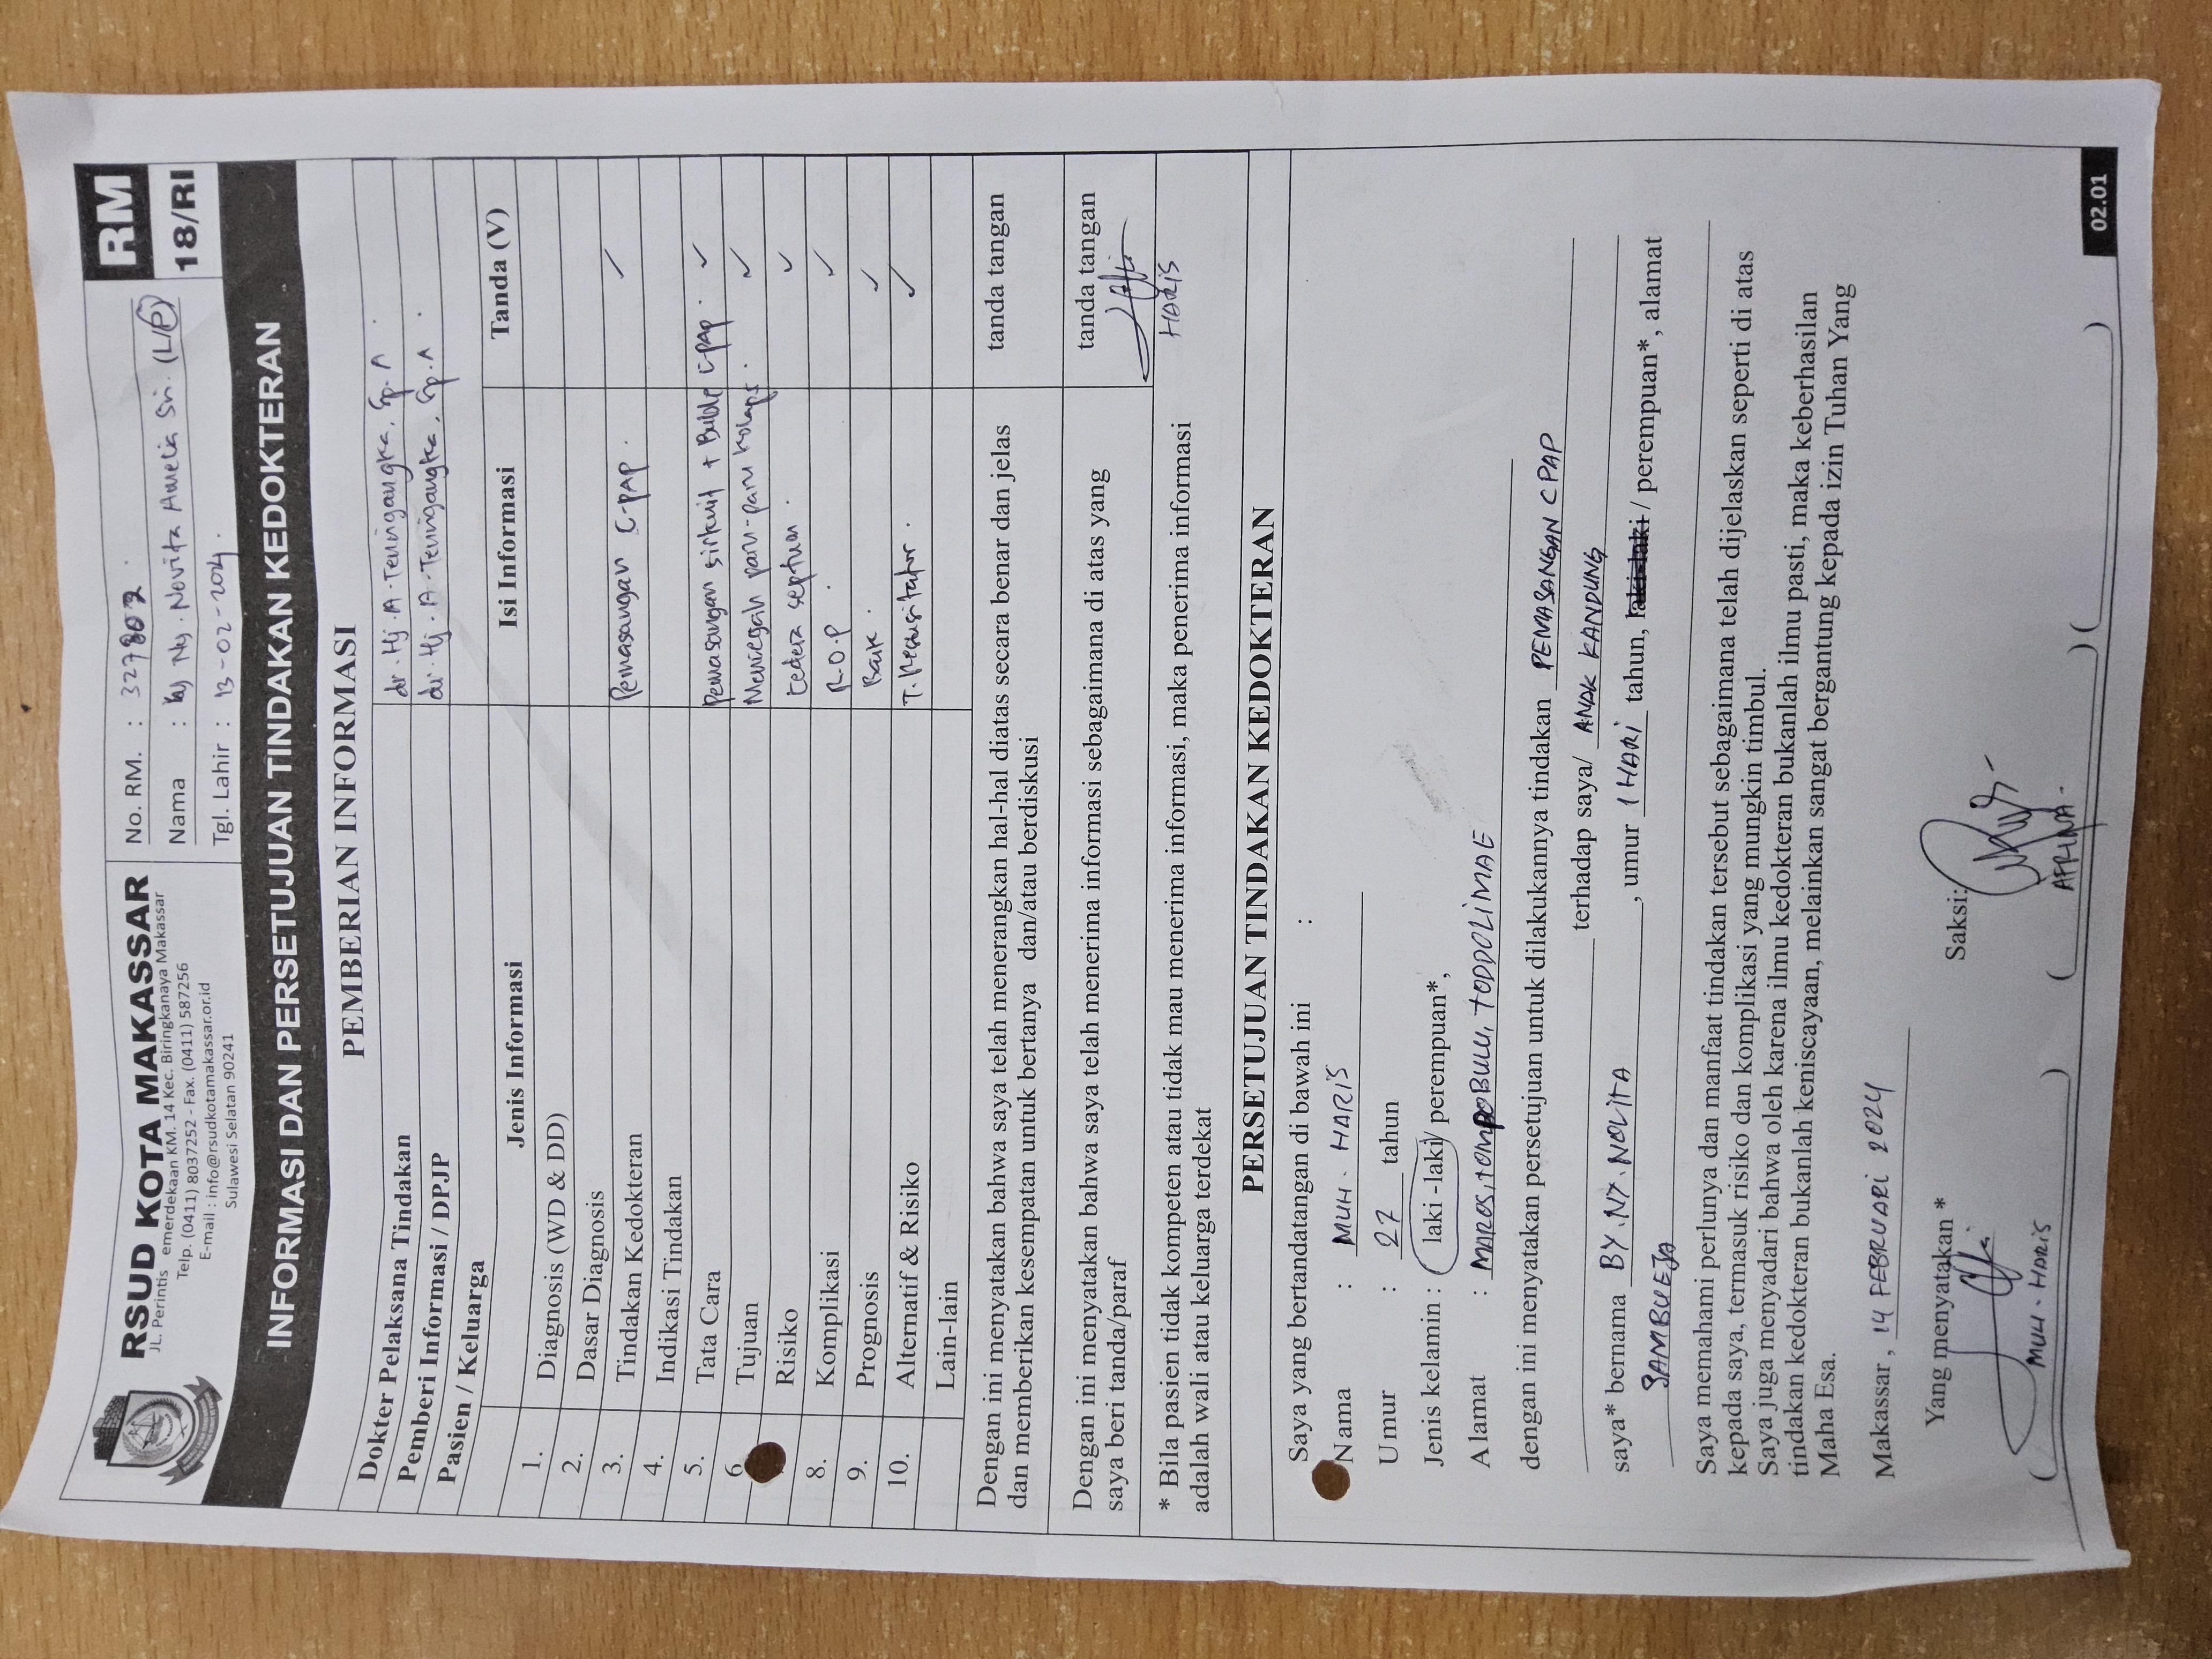 RSUD KOTA MAKASSAR
JL. Perintis emerdekaan KM. 14 Kec. Biringkanaya Makassar
Telp. (0411) 8037252 - Fax. (0411) 587256
E-mail : info@rsudkotamakassar.or.id
Sulawesi Selatan 90241
No. RM. : 327802
Nama : By Ny. Novita Amelia Sri. (L/P)
Tgl. Lahir : 13-02-2024.
RM
18/RI
INFORMASI DAN PERSETUJUAN TINDAKAN KEDOKTERAN
PEMBERIAN INFORMASI
Dokter Pelaksana Tindakan dr. Hj. A. Tenringangka, Sp.A.
Pemberi Informasi / DPJP dr. Hj. A. Tenringangka, Sp.A.
Pasien / Keluarga
Jenis Informasi Isi Informasi Tanda (V)
1. Diagnosis (WD & DD)
2. Dasar Diagnosis
3. Tindakan Kedokteran Pemasangan C-PAP. ✓
4. Indikasi Tindakan
5. Tata Cara Pemasangan sirkuit + Buble C-PAP. ✓
6 Tujuan Mencegah paru-paru kolaps. ✓
Risiko cedera septum. ✓
8. Komplikasi R.O.P. ✓
9. Prognosis Baik. ✓
10. Alternatif & Risiko T. Resusitator. ✓
Lain-lain
Dengan ini menyatakan bahwa saya telah menerangkan hal-hal diatas secara benar dan jelas
dan memberikan kesempatan untuk bertanya dan/atau berdiskusi
tanda tangan
Dengan ini menyatakan bahwa saya telah menerima informasi sebagaimana di atas yang
saya beri tanda/paraf
tanda tangan
HARIS
* Bila pasien tidak kompeten atau tidak mau menerima informasi, maka penerima informasi
adalah wali atau keluarga terdekat
PERSETUJUAN TINDAKAN KEDOKTERAN
Saya yang bertandatangan di bawah ini :
Nama : MUH. HARIS
Umur : 27 tahun
Jenis kelamin : laki -laki/ perempuan*,
Alamat : MAROS, TOMPOBULU, TODDOLIMAE
dengan ini menyatakan persetujuan untuk dilakukannya tindakan PEMASANGAN CPAP
terhadap saya/ ANAK KANDUNG
saya* bernama BY. NY. NOVITA, umur 1 HARI tahun, laki-laki / perempuan*, alamat
SAMBUEJA
Saya memahami perlunya dan manfaat tindakan tersebut sebagaimana telah dijelaskan seperti di atas
kepada saya, termasuk risiko dan komplikasi yang mungkin timbul.
Saya juga menyadari bahwa oleh karena ilmu kedokteran bukanlah ilmu pasti, maka keberhasilan
tindakan kedokteran bukanlah keniscayaan, melainkan sangat bergantung kepada izin Tuhan Yang
Maha Esa.
Makassar , 14 FEBRUARI 2024
Yang menyatakan * Saksi:
( MUH. HARIS ) ( ) ( )
02.01